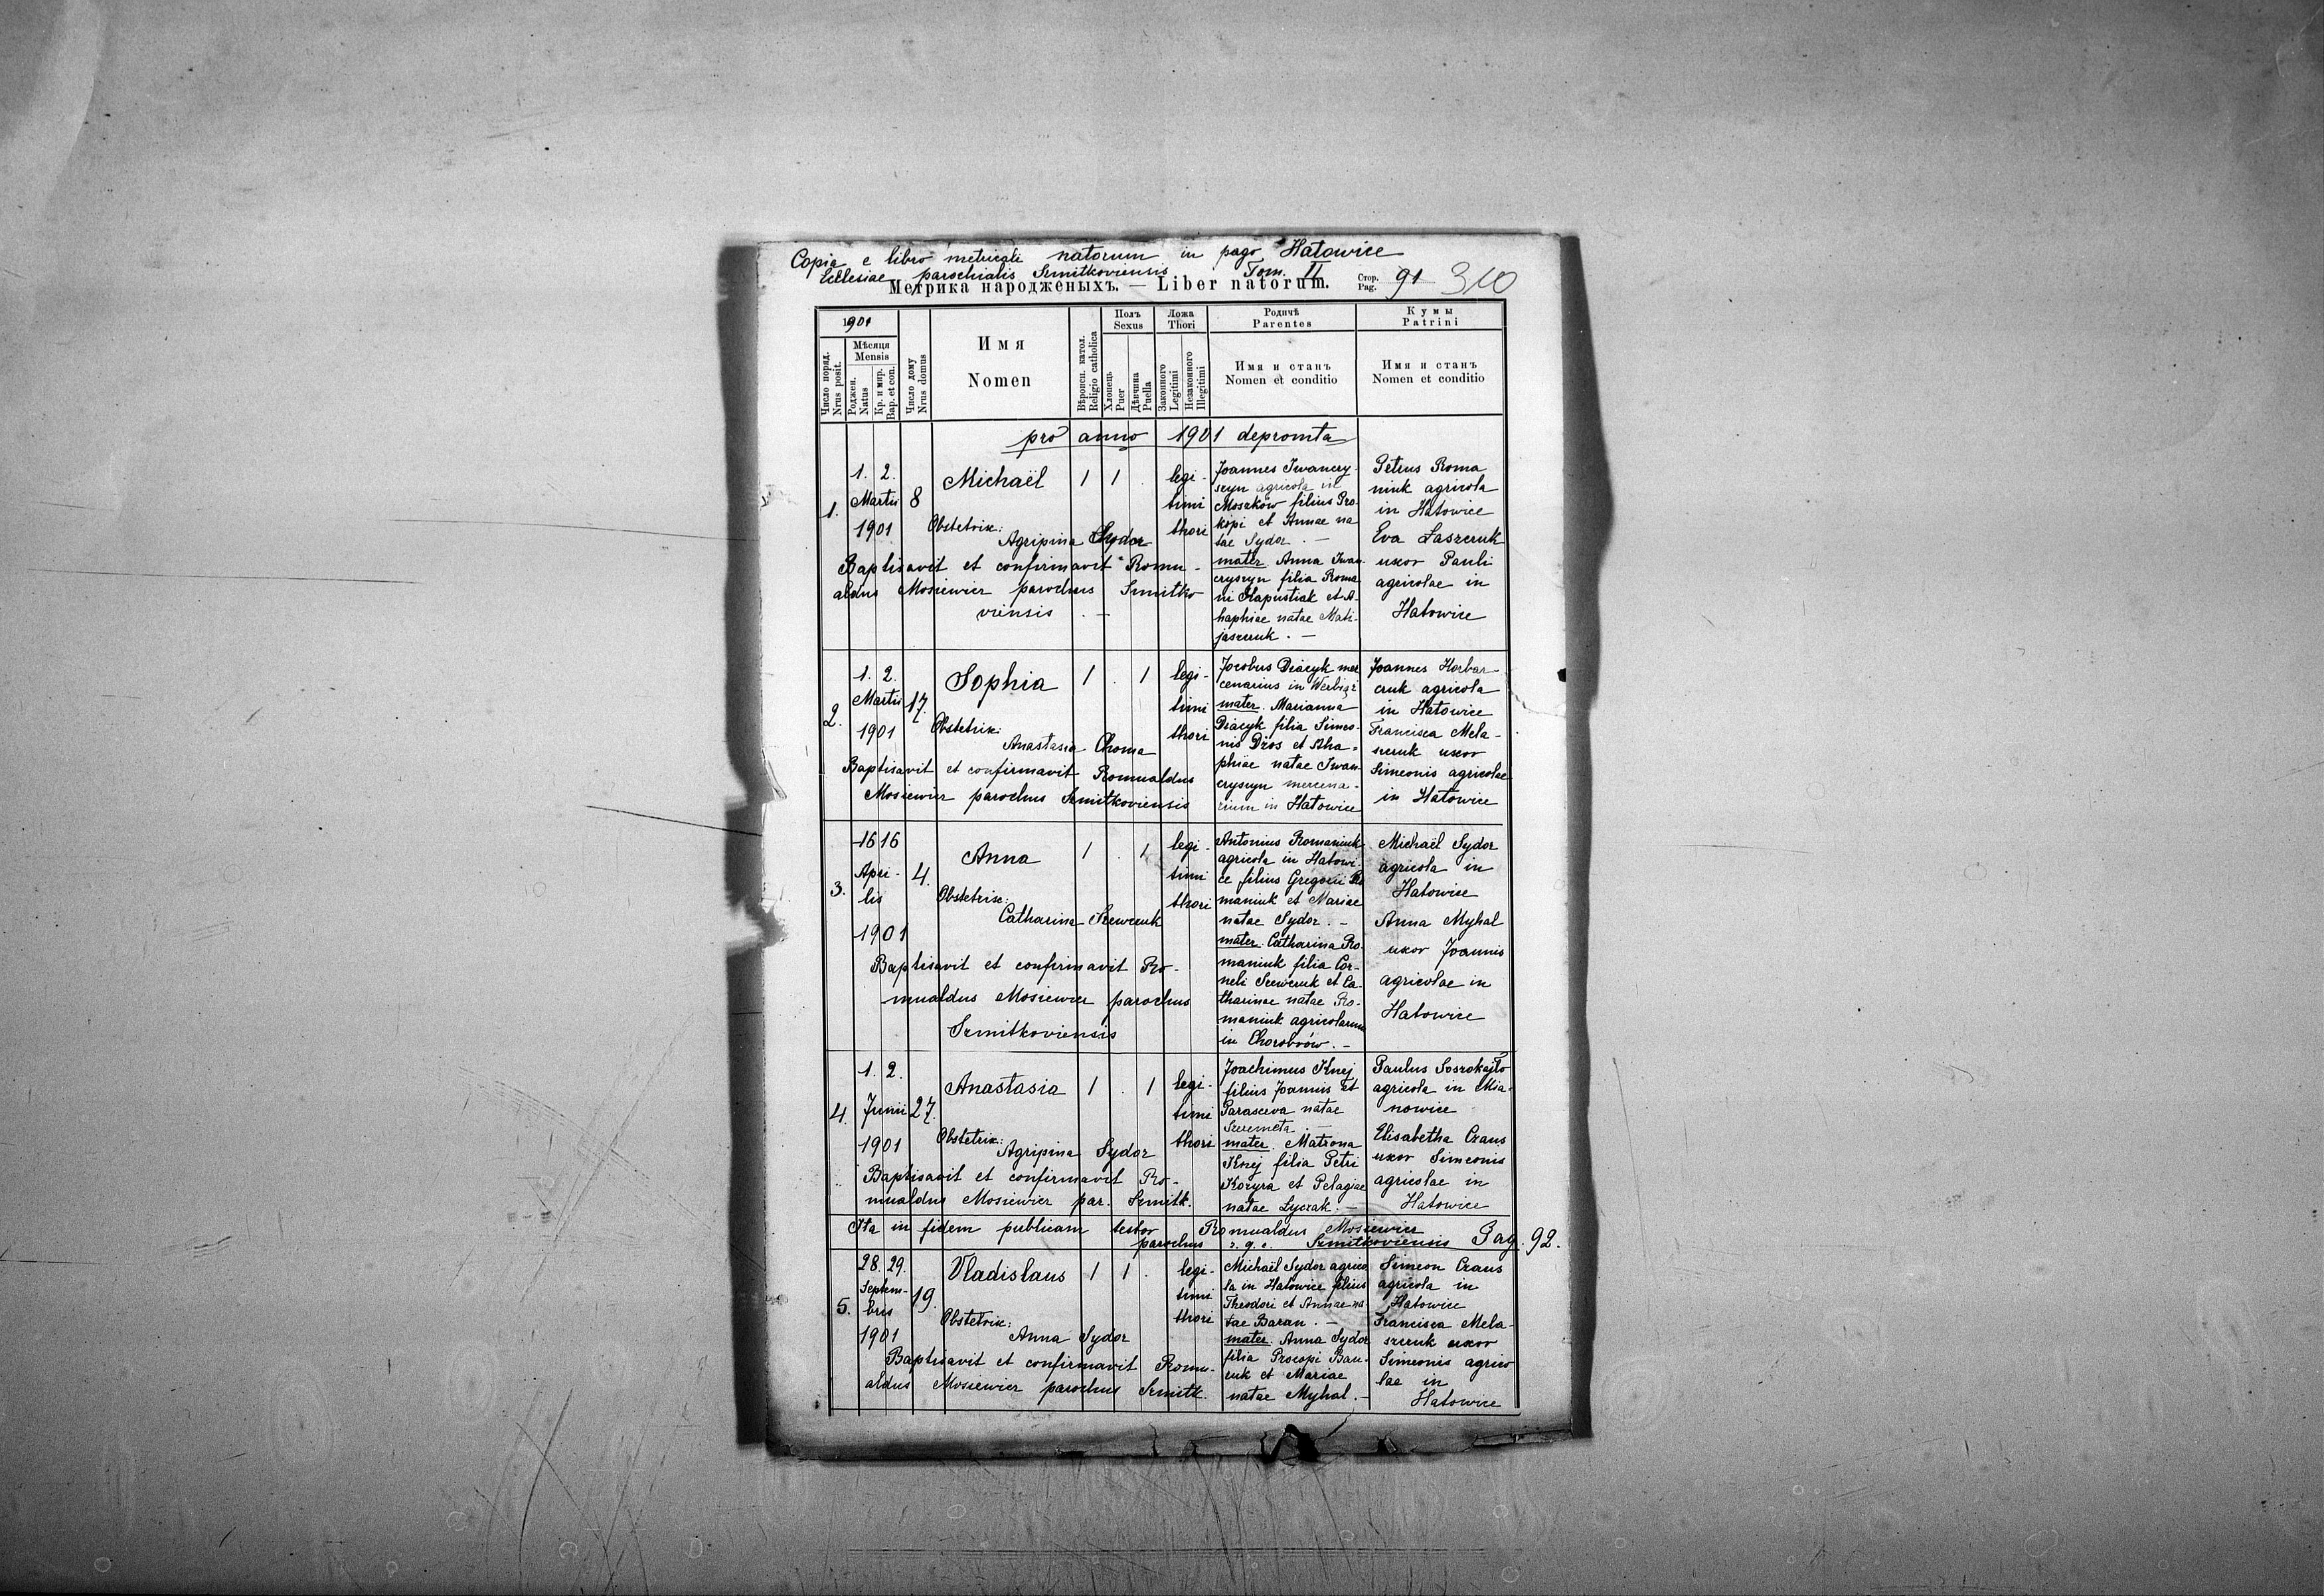 Copia e libro metricali natorum in pago Hatowice
Ecclesiae parochialis Szmitkoviensis Tom. II
Метрика народженыхъ. — Liber natorum. Стор. Pag. 91 310
1901
Число поряд. Nrus posit.
Мѣсяця Mensis
Роджен. Natus
Кр. и мир. Bap. et con.
Число дому Nrus domus
Имя
Nomen
Вѣроисп. катол. Religio catholica
Полъ Sexus
Хлопець Puer
Дѣвчина Puella
Ложа Thori
Законного Legitimi
Незаконного Illegitimi
Родичѣ
Parentes
Имя и станъ
Nomen et conditio
Кумы
Patrini
Имя и станъ
Nomen et conditio
pro anno 1901 depromta
1. 1. 2. Martii 1901 8 Michaël 1 1 . legitimi thori
Obstetrix: Agripina Sydor
Baptisavit et confirmavit Romu-
aldus Mosiewicz parochus Szmitko
viensis . —
Joannes Iwanczy-
szyn agricola in
Moszków filius Pro-
kopi et Annae na
tae Sydor . —
mater Anna Iwan-
czyszyn filia Roma
ni Kapustiak et A-
haphiae natae Mati-
jaszczuk . —
Petrus Roma
niuk agricola
in Hatowice
Eva Łaszczuk
uxor Pauli
agricolae in
Hatowice
2. 1. 2. Martii 1901 17. Sophia 1 . 1 legi- timi thori
Obstetrix: Anastasia Choma
Baptisavit et confirmavit Romualdus
Mosiewicz parochus Szmitkoviensis
Jacobus Diaczyk mer
cenarius in Werbiąż
mater. Marianna
Diaczyk filia Simeo-
nis Dżos et Aha-
phiae natae Iwan-
czyszyn mercena-
rium in Hatowice
Joannes Horbar
czuk agricola
in Hatowice
Francisca Mela-
szczuk uxor
Simeonis agricolae
in Hatowice
3. 16 16 Apri- lis 1901 4. Anna 1 . 1 legi- timi thori
Obstetrix: Catharina Szewczuk
Baptisavit et confirmavit Ro-
mualdus Mosiewicz parochus
Szmitkoviensis
Antonius Romaniuk
agricola in Hatowi-
ce filius Gregorii Ro
maniuk et Mariae
natae Sydor . —
mater. Catharina Ro-
maniuk filia Cor-
neli Szewczuk et Ca-
tharinae natae Ro-
maniuk agricolarum
in Chorobrów . —
Michaël Sydor
agricola in
Hatowice
Anna Myhal
uxor Joannis
agricolae in
Hatowice
4. 1. 2. Junii 1901 27. Anastasia 1 . 1 legi- timi thori
Obstetrix: Agripina Sydor
Baptisavit et confirmavit Ro-
mualdus Mosiewicz par. Szmitk.
Joachimus Knej
filius Joannis et
Parasceva natae
Szeremeta . —
mater Matrona
Knej filia Petri
Kozyra et Pelagiae
natae Łyczak . —
Paulus Soszokajło
agricola in Mia-
nowice
Elisabetha Czaus
uxor Simeonis
agricolae in
Hatowice
Ita in fidem publicam testor Romualdus Mosiewicz
parochus r. g. c. Szmitkoviensis Pag. 92.
5. 28. 29. Septem- bris 1901 19. Vladislaus 1 1 . legi- timi thori
Obstetrix: Anna Sydor
Baptisavit et confirmavit Romu-
aldus Mosiewicz parochus Szmitk.
Michaël Sydor agrico
la in Hatowice filius
Theodori et Annae na-
tae Baran . —
mater. Anna Sydor
filia Procopi Bau-
czuk et Mariae
natae Myhal . —
Simeon Czaus
agricola in
Hatowice
Francisca Mela-
szczuk uxor
Simeonis agrico
lae in
Hatowice